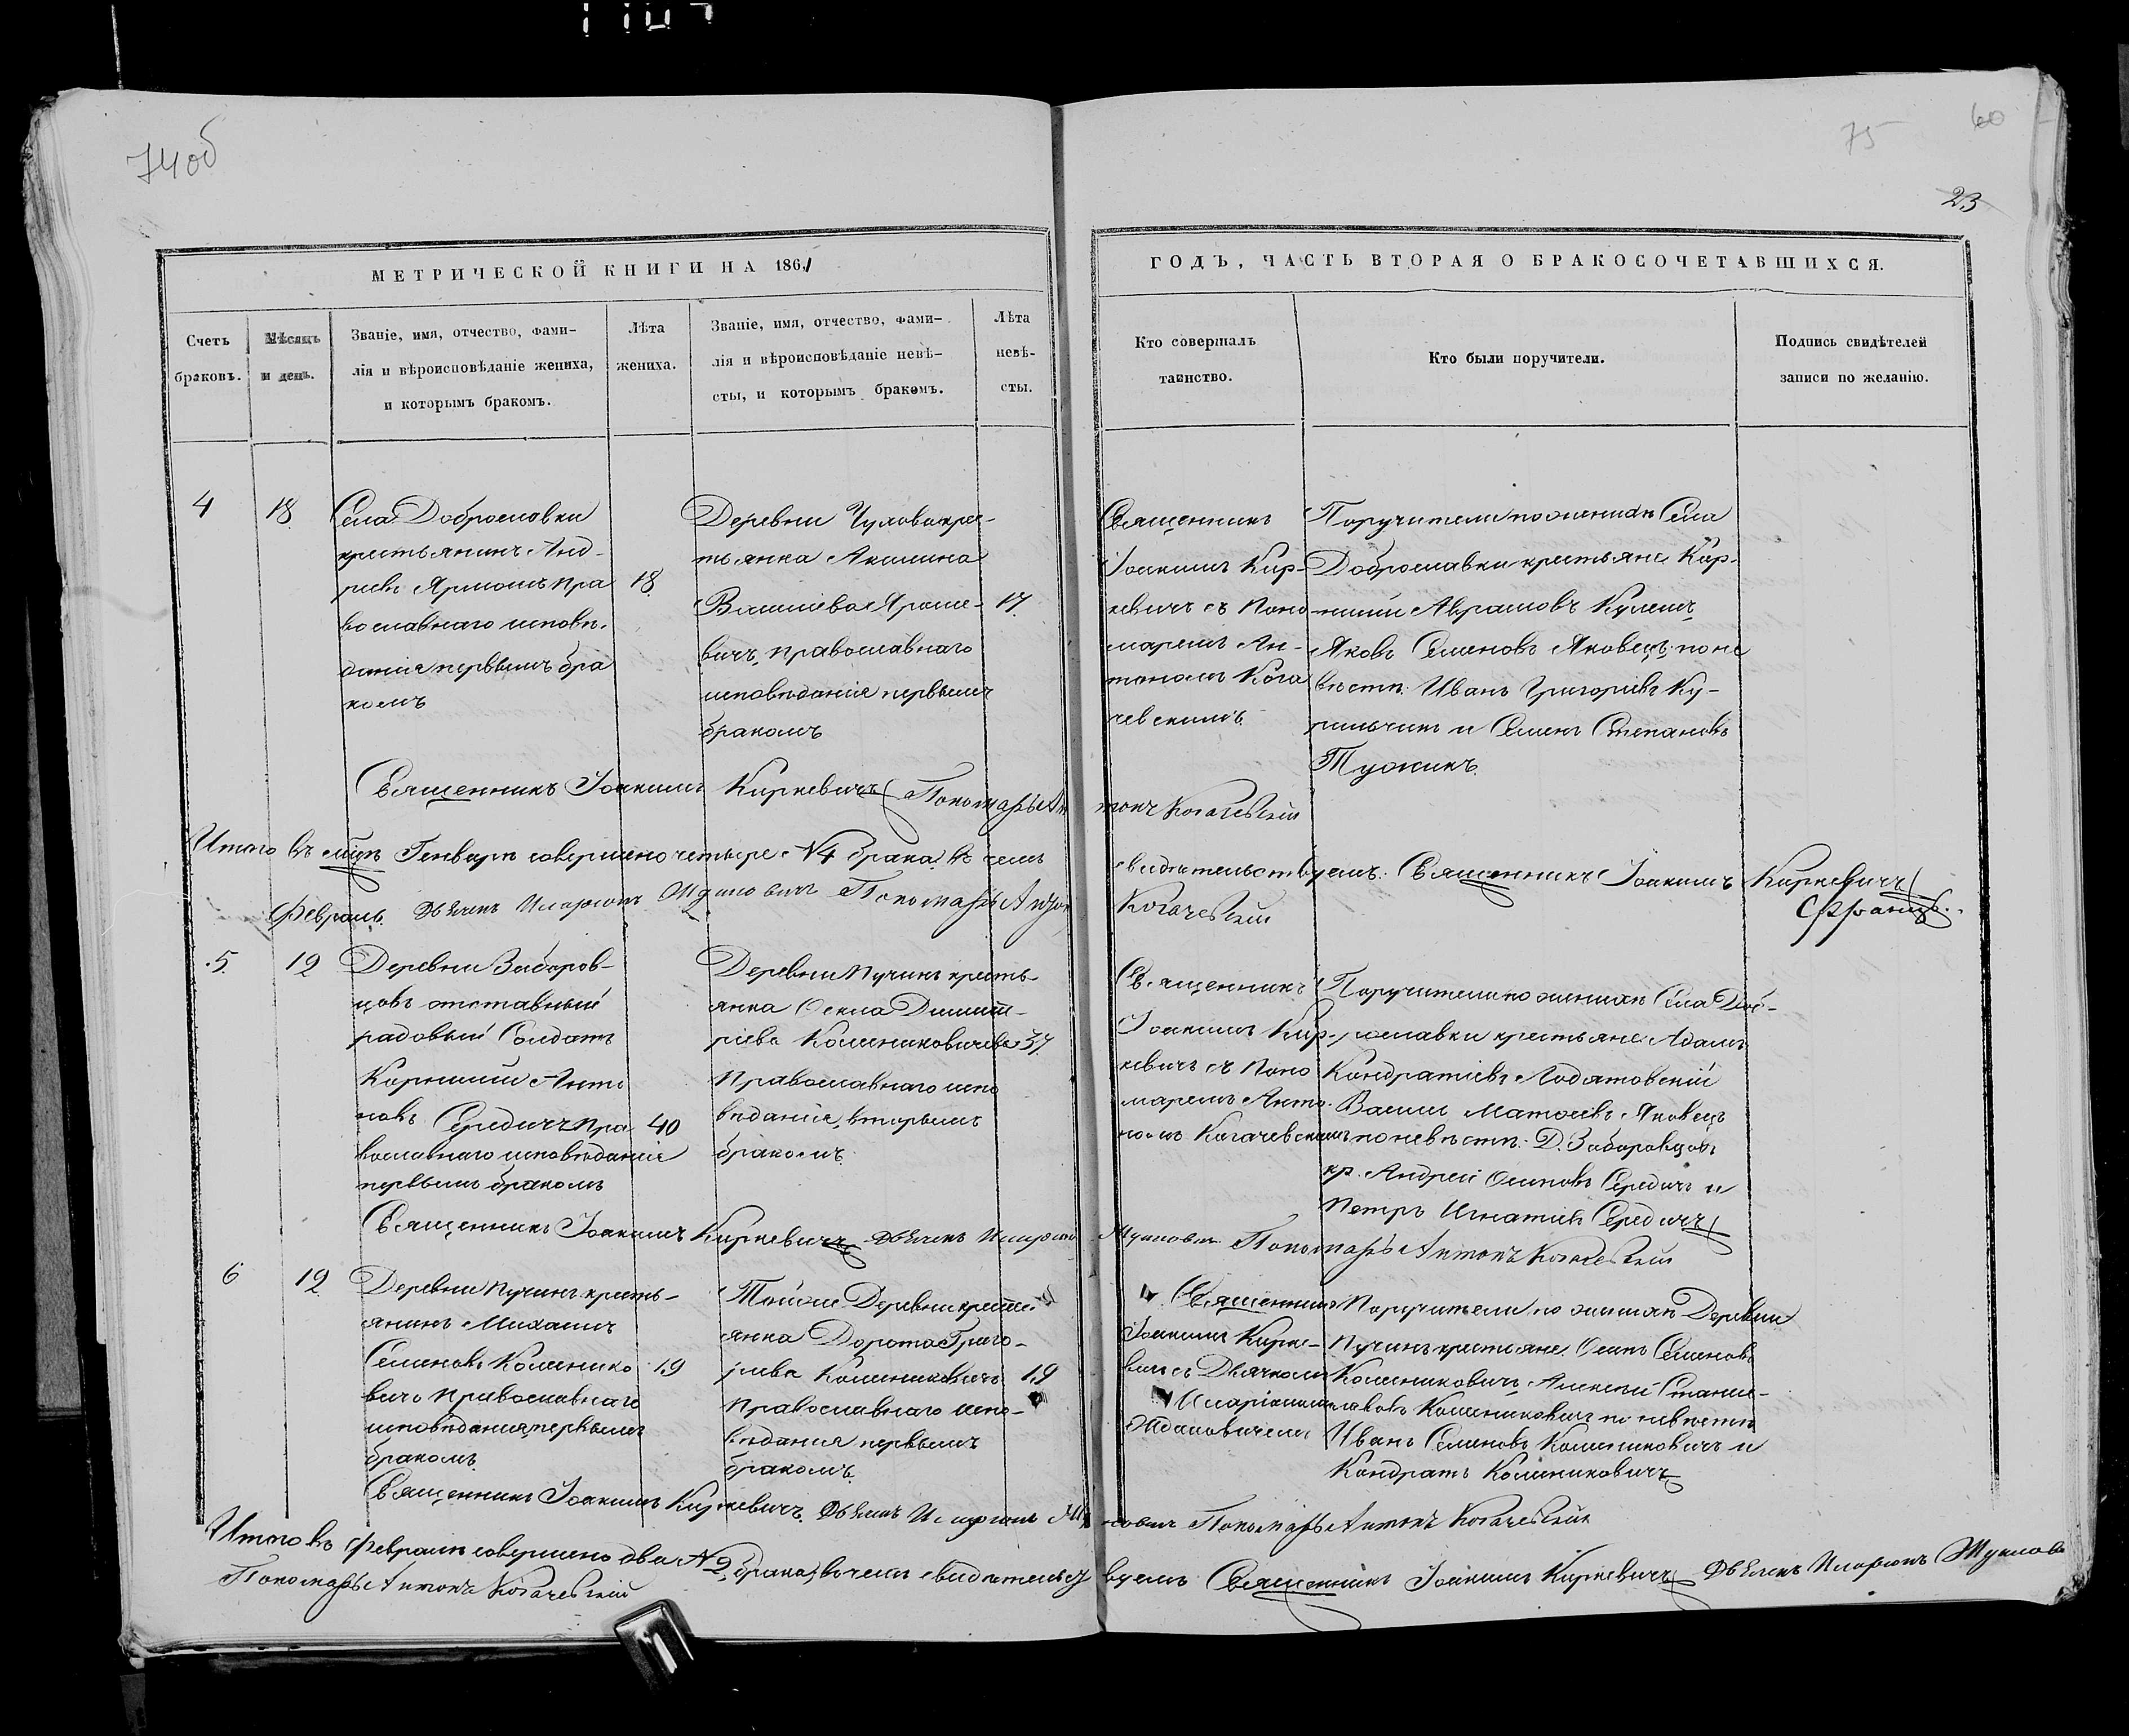 74об
75
60
23
МЕТРИЧЕСКОЙ КНИГИ НА 1861
ГОДЪ, ЧАСТЬ ВТОРАЯ О БРАКОСОЧЕТАВШИХСЯ.
Счетъ
браковъ.
Мѣсяцъ
и день.
Званіе, имя, отчество, фами-
лія и вѣроисповѣданіе жениха,
и которымъ бракомъ.
Лѣта
жениха.
Званіе, имя, отчество, фами-
лія и вѣроисповѣданіе невѣ-
сты, и которымъ бракомъ.
Лѣта
невѣ-
сты.
Кто совершалъ
таинство.
Кто были поручители.
Подпись свидѣтелей
записи по желанію.
4
18
Села Доброславки
крестьянинъ Анд-
рей Ярмошъ пра
вославнаго исповѣ-
данія первымъ бра
комъ
18
Деревни крес-
тьянка Акилина
Яроше-
вичъ, православнаго
исповѣданія первымъ
бракомъ
17
Священникъ
Іоакимъ Кир-
кевичъ съ Поно
маремъ Ан-
тономъ Кога
чевскимъ
Поручители по женихѣ Села
Доброславки крестьяне Кор-
нилій Аврамовъ Кулешъ,
Яковъ Семеновъ Яковецъ; по не
вѣстѣ: Иванъ Григоріевъ Ку-
рильчикъ и Семенъ Степановъ
Тужикъ.
Священникъ Іоакимъ Киркевичъ Пономарь Антонъ Когачевскій
Итого въ мцѣ Генварѣ совершено четыре №4 брака, въ чемъ свидѣтельствуемъ: Священникъ Іоакимъ Киркевичъ
Дьячекъ Иларіонъ Ждановичъ Пономарь Антонъ Когачевскій
Февраль.
5
12
Деревни Заборов-
цовъ отставный
радовый Солдатъ
Корнилій Анто
новъ Середичъ пра
вославнаго исповѣданія
первымъ бракомъ
40
Деревни Пучинъ кресть-
янка Фекла Димит-
ріева Колениковичева
Православнаго испо
вѣданія, вторымъ
бракомъ.
37
Священникъ
Іоакимъ Кир-
кевичъ съ Поно
маремъ Анто-
номъ Когачевскимъ
Поручители по женихѣ Села Доб-
рославки крестьяне: Адамъ
Кондратіевъ Лодятовскій
Василій Матвеевъ Яковецъ
по невѣстѣ: Д. Заборовцовъ
кр. Андрей Осиповъ Середичъ и
Петръ Игнатіевъ Середичъ
Священникъ Іоакимъ Киркевичъ Дьячекъ Иларіонъ Ждановичъ Пономарь Антонъ Когачевскій
6
12
Деревни Пучинъ кресть-
янинъ Михаилъ
Семеновъ Коленико
вичъ Православнаго
исповѣданія, первымъ
бракомъ
19
Тойже Деревни кресть-
янка Дорота Григо-
ріева Колениковичъ
Православнаго испо-
вѣданія первымъ
бракомъ
19
Священникъ
Іоакимъ Кирке-
вичъ съ Дьячкомъ
Иларіономъ
Ждановичемъ
Поручители по женихѣ Деревни
Пучинъ крестьяне: Осипъ Семеновъ
Колениковичъ, Алексѣй Станис-
лавовъ Колениковичъ по невѣстѣ
Иванъ Семеновъ Колениковичъ и
Кондратъ Колениковичъ
Священникъ Іоакимъ Киркевичъ Дьячекъ Иларіонъ Ждановичъ Пономарь Антонъ Когачевскій
Итого въ Февралѣ совершено два №2 брака, въ чемъ свидѣтельствуемъ Священникъ Іоакимъ Киркевичъ Дьячекъ Иларіонъ Жданов
Пономарь Антонъ Когачевскій